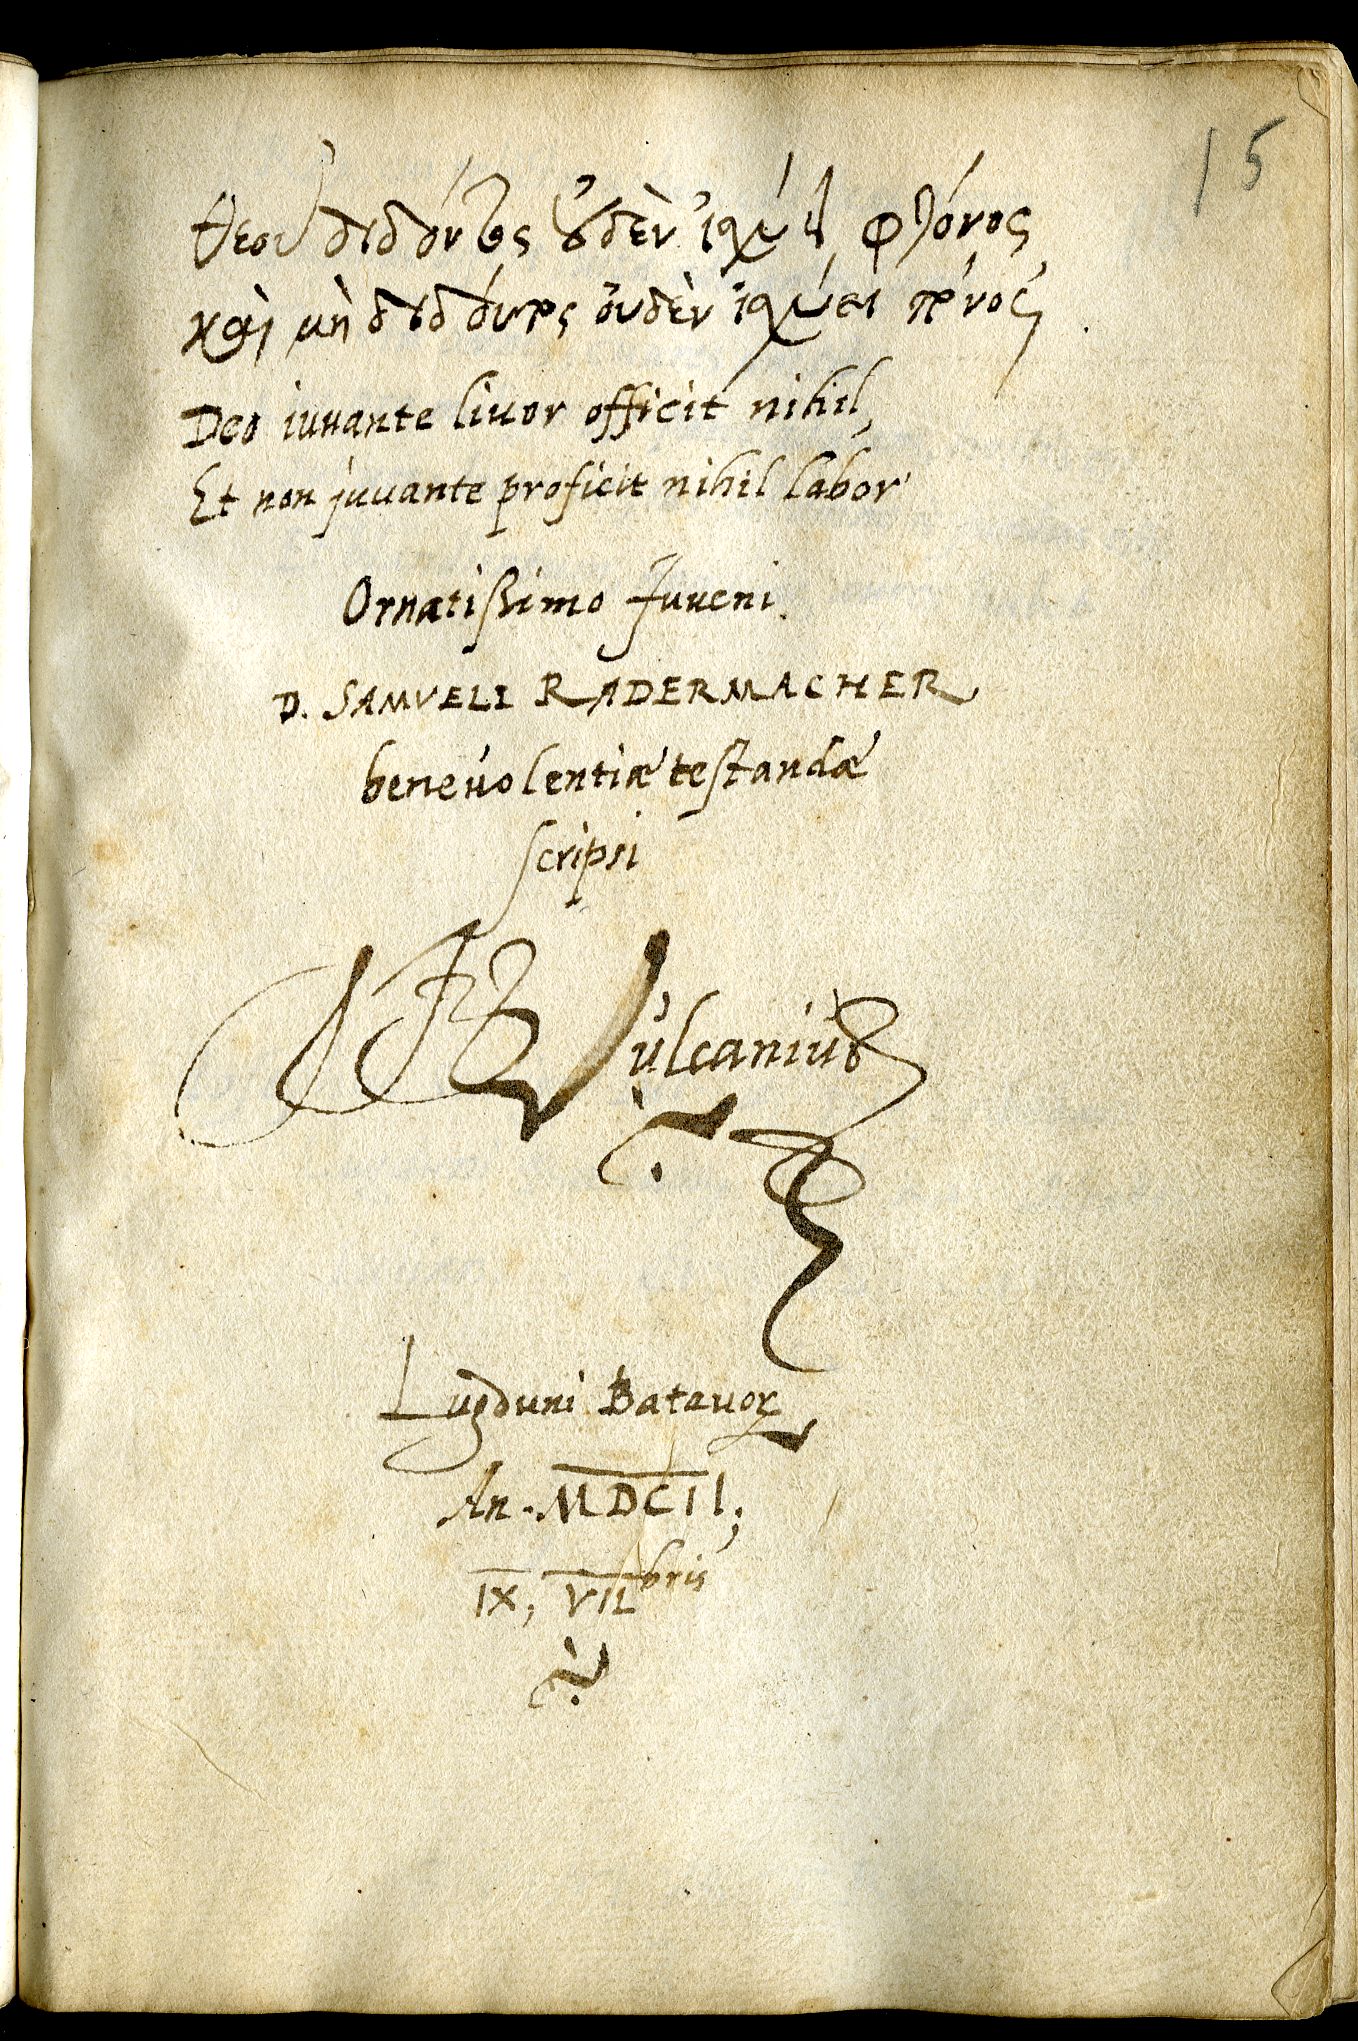 15
Θεοῦ διδόντος οὐδὲν ἰσχύει φθόνος,
καὶ μὴ διδόντος οὐδὲν ἰσχύει πόνος.
Deo iuuante liuor officit nihil,
Et non juuante proficit nihil labor
Ornatißimo Juueni
D. SAMVELI RADERMACHER
beneuolentiæ testandæ
scripsi
Vulcanius
Lugduni Batauoꝝ
An. MDCII;
IX, VIIbris